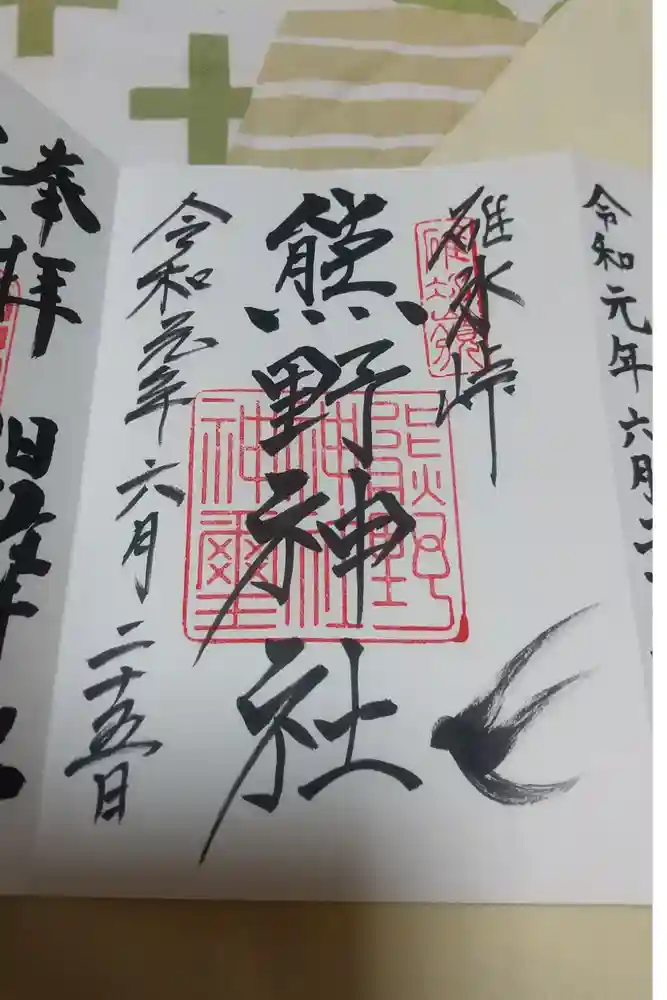 令和元年六月二
碓氷峠
熊野神社
熊野
神社
神璽
令和元年六月二十五日
奉拝